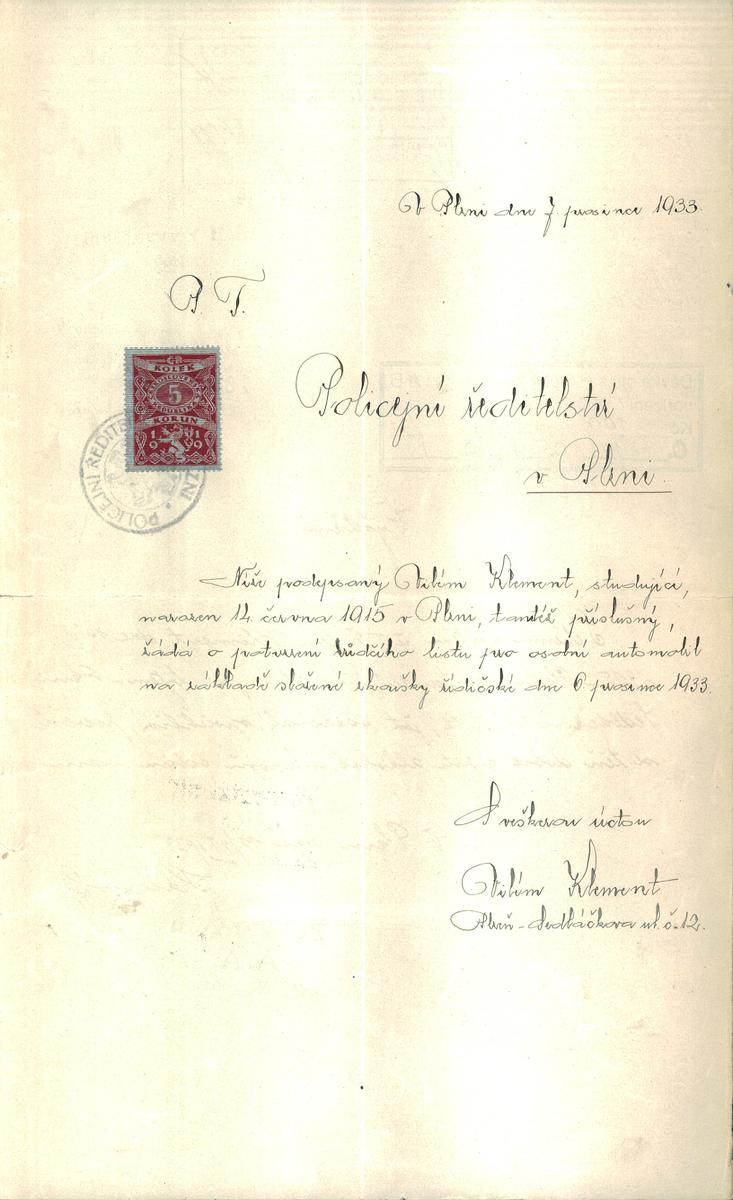 V Plzni dne 7. prosince 1933.
P. T.
Policejní ředitelství
v Plzni.
KOLEK
5
KORUN
POLICEJNÍ ŘEDITELS
ZNI
Níže podepsaný Vilém Klement, studující,
narozen 14. června 1915 v Plzni, tamtéž příslušný,
žádá o potvrzení vůdčího listu pro osobní automobil
na základě složené zkoušky řidičské dne 6. prosince 1933.
S veškerou úctou
Vilém Klement
Plzeň - Sedláčkova ul. č. 12.